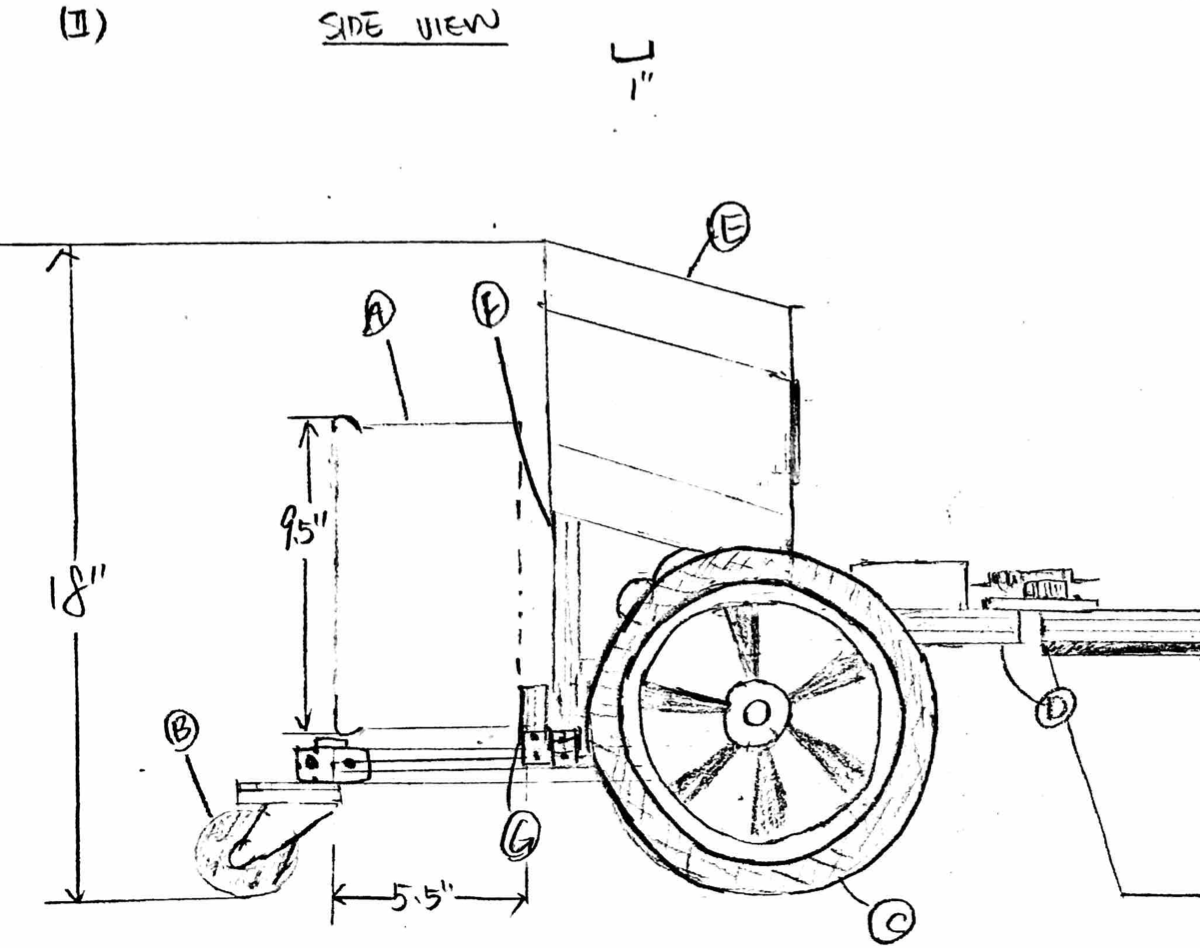 (II) SIDE VIEW
1"
E
A F
9.5"
18"
D
B
G
5.5"
C